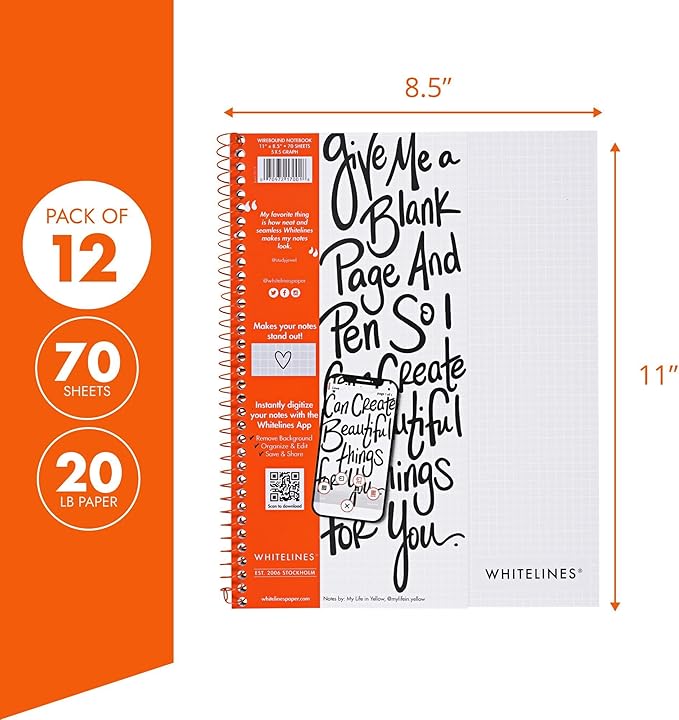 8.5”
11”
PACK OF
12
70
SHEETS
20
LB PAPER
WIREBOUND NOTEBOOK
11" x 8.5" • 70 SHEETS
5 X 5 GRAPH
“
My favorite thing
is how neat and
seamless Whitelines
makes my notes
look.
”
@studyjewel
@whitelinespaper
Makes your notes
stand out!
Instantly digitize
your notes with the
Whitelines App
✓ Remove Background
✓ Organize & Edit
✓ Save & Share
Scan to download
WHITELINES
EST. 2006 STOCKHOLM
whitelinespaper.com
Give Me a
Blank
Page And
Pen So I
Can Create
Beautiful
things
for You.
Can Create
Beautiful
things
for You.
Notes by: My Life in Yellow, @mylifein.yellow
WHITELINES®